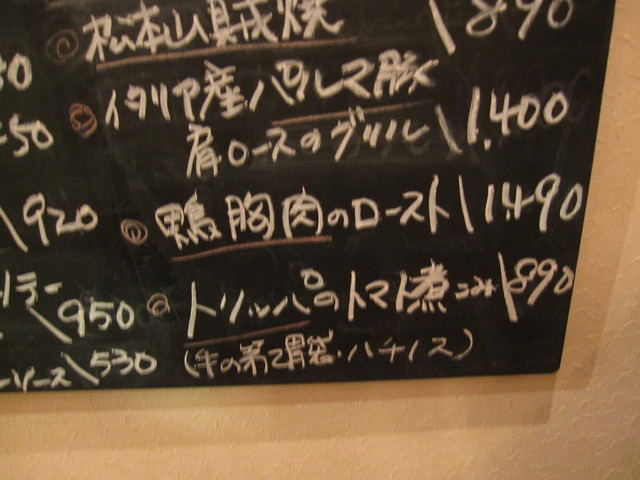 松本山賊焼 \890
イタリア産パルマ豚
肩ロースのグリル \1,400
鴨胸肉のロースト \1,490
トリッパのトマト煮こみ \890
(牛の第2胃袋・ハチノス)
50
\920
\950
ーソース \530